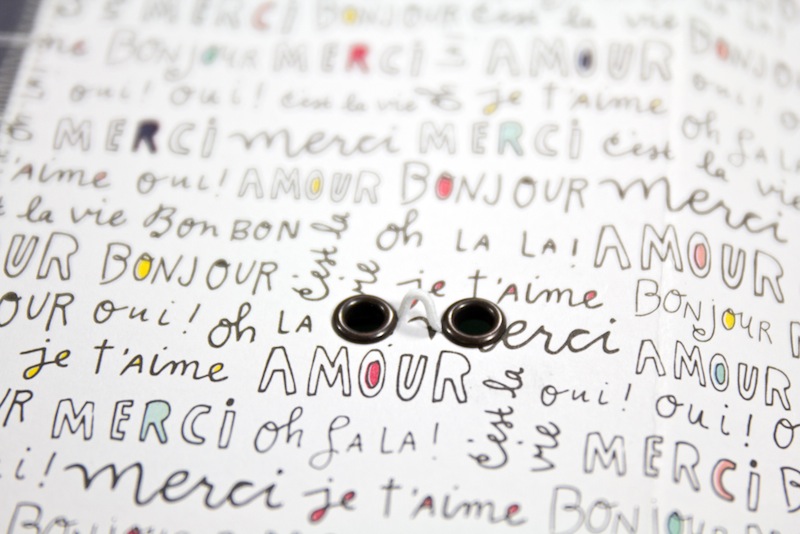 MERCI BONJOUR c'est la vie
me BONJOUR MERCI AMOUR BONJOU
oui! oui! c'est la vie je t'aime oui!
MERCI merci MERCI c'est oh LA LA
t'aime oui! AMOUR BONJOUR merci la vie
t la vie Bon BON c'est la vie oh LA LA! AMOUR
UR BONJOUR je t'aime BONJOUR
OUR oui! oh LA merci AMOUR
je t'aime AMOUR c'est la vie oui! oui!
UR MERCI oh LA LA! MERCI
i! merci je t'aime BONJOUR
Bonjour